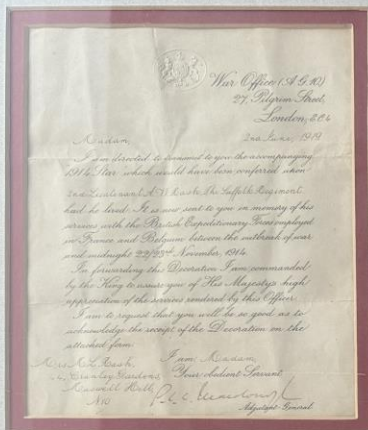 War Office (A.G.10)
27, Pilgrim Street,
London, E.C.4
2nd June, 1919
Madam,
I am directed to transmit to you the accompanying
1914 Star which would have been conferred upon
2nd Lieutenant A. The Suffolk Regiment
had he lived. It is now sent to you in memory of his
services with the British Expeditionary Forces employed
in France and Belgium between the outbreak of war
and midnight 22/23rd November, 1914.
In forwarding this Decoration I am commanded
by the King to assure you of His Majesty's high
appreciation of the services rendered by this Officer.
I am to request that you will be so good as to
acknowledge the receipt of the Decoration on the
attached form.
I am Madam,
Your obedient Servant
Adjutant-General
Mrs
Gardens,
Muswell Hill,